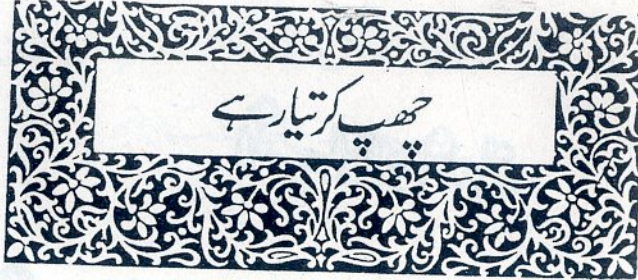 چھپ کر تیار ہے